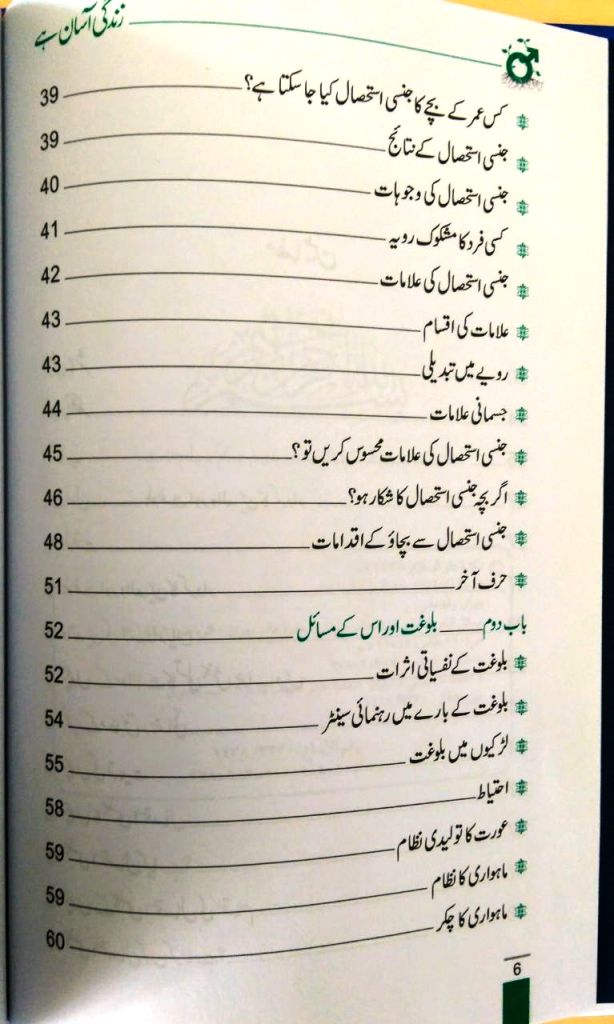 زندگی آسان ہے
کس عمر کے بچے کا جنسی استحصال کیا جا سکتا ہے؟ 39
جنسی استحصال کے نتائج 39
جنسی استحصال کی وجوہات 40
کسی فرد کا مشکوک رویہ 41
جنسی استحصال کی علامات 42
علامات کی اقسام 43
رویے میں تبدیلی 43
جسمانی علامات 44
جنسی استحصال کی علامات محسوس کریں تو؟ 45
اگر بچہ جنسی استحصال کا شکار ہو؟ 46
جنسی استحصال سے بچاؤ کے اقدامات 48
حرف آخر 51
باب دوم ــــــ بلوغت اور اس کے مسائل 52
بلوغت کے نفسیاتی اثرات 52
بلوغت کے بارے میں رہنمائی سینٹر 54
لڑکیوں میں بلوغت 55
احتیاط 58
عورت کا تولیدی نظام 59
ماہواری کا نظام 59
ماہواری کا چکر 60
6